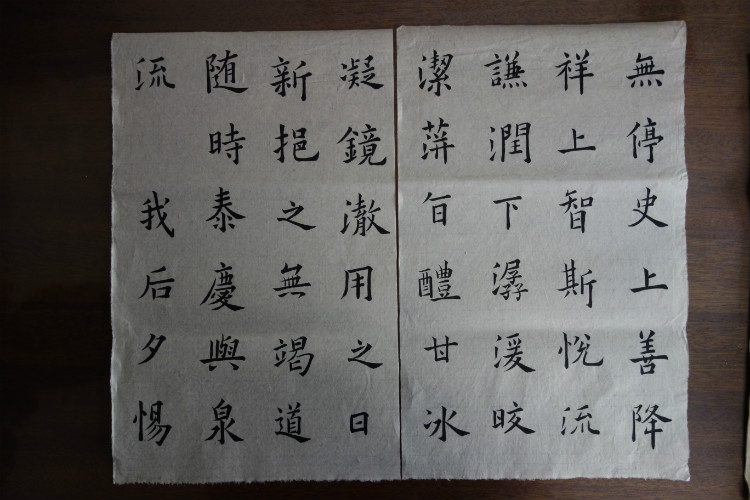 無停史上善降
祥上智斯悅流
謙潤下潺湲晈
潔蓱旨醴甘冰
凝鏡澈用之日
新挹之無竭道
随時泰慶與泉
流 我后夕惕